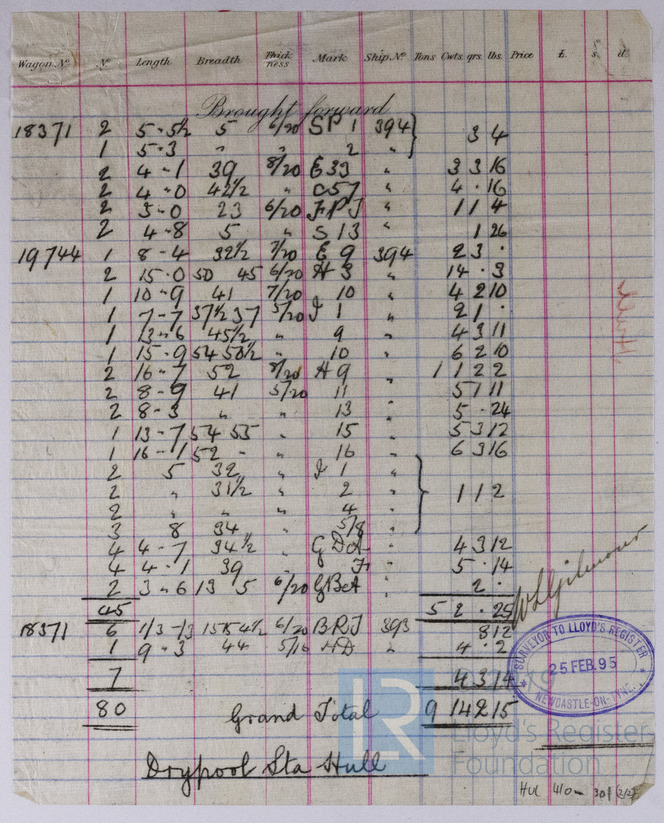 Wagon.No. No. Length Breadth Thickness Mark Ship.No. Tons Cwts. qrs. lbs. Price £. s. d.
Brought forward
18371 2 5-5½ 5 6/20 SP 1 394 } 3 4
1 5-3 " " 2 "
2 4-1 39 8/20 E33 " 3 3 16
2 4-0 42½ " C57 " 4 · 16
2 5-0 23 6/20 FPJ " 1 1 4
2 4-8 5 " S 13 " 1 26
19744 1 8-4 32½ 7/20 E 9 394 2 3 ·
2 15-0 50 45 6/20 H 3 " 14 · 3
1 10-9 41 7/20 10 " 4 2 10
1 7-7 37½ 37 5/20 J 1 " 2 1 ·
1 13-6 45½ " 9 " 4 3 11
1 15-9 54 50½ " 10 " 6 2 10
2 16-7 52 8/20 H 9 " 1 1 2 2
2 8-9 41 5/20 11 " 5 1 11
2 8-3 " " 13 " 5 · 24
1 13-7 54 55 " 15 " 5 3 12
1 16-1 52 - " 16 " 6 3 16
2 5 32 " J 1 "
2 " 31½ " 2 " } 1 1 2
2 " " " 4 "
3 8 34 " 5/8 "
4 4-7 34½ " G D " 4 3 12
4 4-1 39 " " 5 · 14
2 3-6 13 5 6/20 GBeA " 2 ·
45 5 2 · 25
W L Gilmour
18371 6 4½ 6/20 BRJ 393 8 12
1 9-3 44 5/16 HD " 4 · 2
7 4 3 14
80 Grand Total 9 14 2 15
SURVEYOR TO LLOYD'S REGISTER
25 FEB. 95
NEWCASTLE-ON-TYNE.
Drypool Sta Hull
LR Lloyd's Register Foundation
HUL 410 - 301 (2/2)